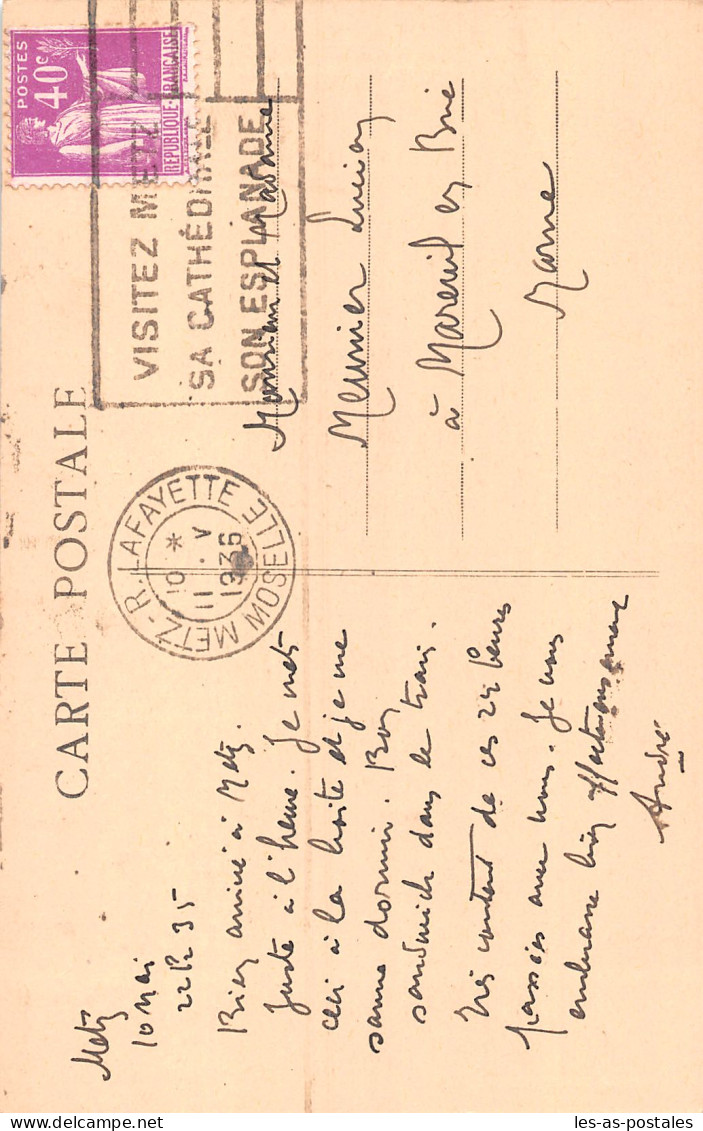 CARTE POSTALE
POSTES
40c
REPUBLIQUE FRANÇAISE
VISITEZ METZ
SA CATHÉDRALE
SON ESPLANADE
METZ-R. LAFAYETTE MOSELLE
10 *
11 . V
1936
Metz
10 Mai
22h 35
Bien arrivé à Metz
juste à l'heure. Je mets
ceci à la boîte et je me
sauve dormir. Bon
sandwich dans le train.
Très content de ces 24 heures
passées avec vous. Je vous
embrasse bien affectueusement
André
Monsieur et Madame
Meunier Lucien
à Mareuil en Brie
Marne
les-as-postales